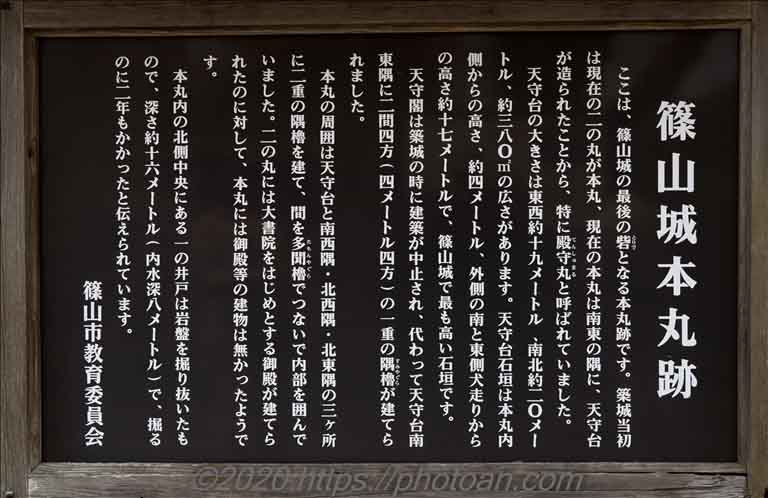 篠山城本丸跡
ここは、篠山城の最後の砦となる本丸跡です。築城当初
は現在の二の丸が本丸、現在の本丸は南東の隅に、天守台
が造られたことから、特に殿守丸と呼ばれていました。
天守台の大きさは東西約十九メートル、南北約二〇メー
トル、約三八〇㎡の広さがあります。天守台石垣は本丸内
側からの高さ、約四メートル、外側の南と東側犬走りから
の高さ約十七メートルで、篠山城で最も高い石垣です。
天守閣は築城の時に建築が中止され、代わって天守台南
東隅に二間四方(四メートル四方)の一重の隅櫓が建てら
れました。
本丸の周囲は天守台と南西隅・北西隅・北東隅の三ヶ所
に二重の隅櫓を建て、間を多聞櫓でつないで内部を囲んで
いました。二の丸には大書院をはじめとする御殿が建てら
れたのに対して、本丸には御殿等の建物は無かったようで
す。
本丸内の北側中央にある一の井戸は岩盤を掘り抜いたも
ので、深さ約十六メートル(内水深八メートル)で、掘る
のに二年もかかったと伝えられています。
篠山市教育委員会
©2020 https://photoan.com/